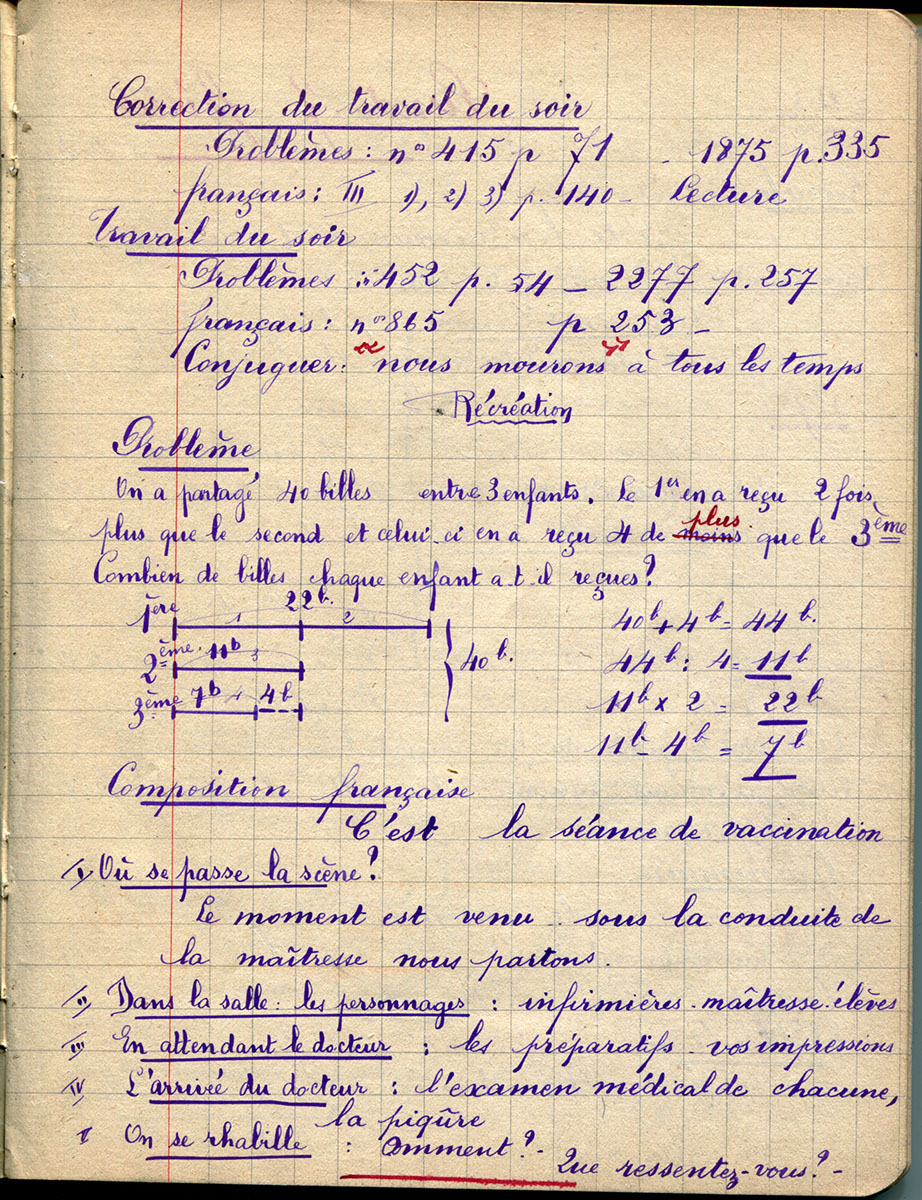 Correction du travail du soir
Problèmes : nos 415 p 71 - 1875 p. 335
français : III 1), 2) 3) p. 140 - Lecture
Travail du soir
Problèmes : 452 p. 54 - 2277 p. 257
français : n° 865 p 253 -
Conjuguer : " nous mourons " à tous les temps
Récréation
Problème
On a partagé 40 billes entre 3 enfants. Le 1er en a reçu 2 fois
plus que le second et celui-ci en a reçu 4 de moins plus que le 3ème
Combien de billes chaque enfant a-t-il reçues?
1ère 1 22b. 2
2ème 11b 3
3ème 7b 4 4b
40b.
40b + 4b = 44b.
44b : 4 = 11b
11b x 2 = 22b
11b - 4b = 7b
Composition française
C'est la séance de vaccination
I) Où se passe la scène?
Le moment est venu. sous la conduite de
la maîtresse nous partons.
II) Dans la salle : les personnages : infirmières - maîtresse - élèves
III) En attendant le docteur : les préparatifs - vos impressions
IV L'arrivée du docteur : l'examen médical de chacune,
la piqûre
V On se rhabille : Comment? -
Que ressentez-vous? -